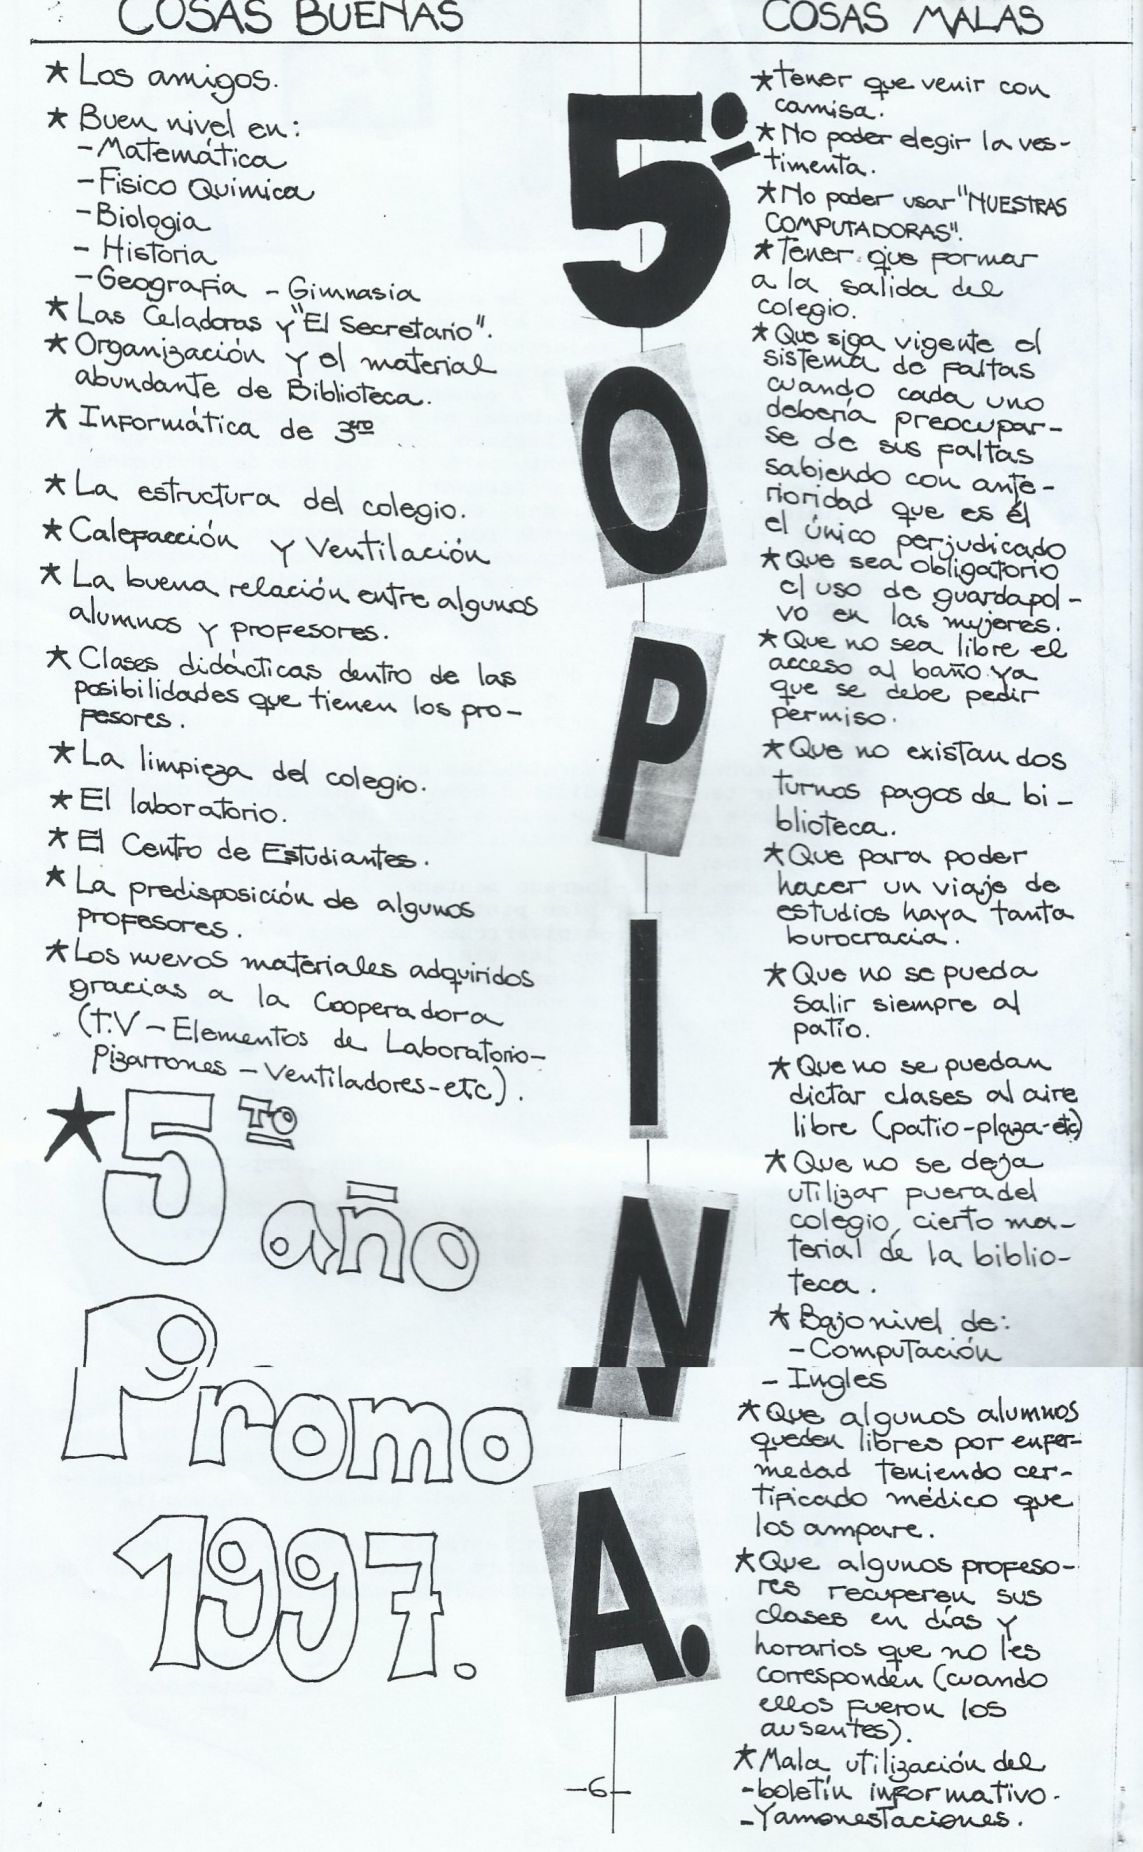 COSAS BUENAS
★ Los amigos.
★ Buen nivel en:
- Matemática
- Físico Química
- Biologia
- Historia
- Geografia - Gimnasia
★ Las Celadoras y "El Secretario".
★ Organización y el material
abundante de Biblioteca.
★ Informática de 3ero
★ La estructura del colegio.
★ Calefacción y Ventilación
★ La buena relación entre algunos
alumnos y profesores.
★ Clases didácticas dentro de las
posibilidades que tienen los pro-
fesores.
★ La limpieza del colegio.
★ El laboratorio.
★ El Centro de Estudiantes.
★ La predisposición de algunos
profesores.
★ Los nuevos materiales adquiridos
gracias a la Cooperadora
(T.V - Elementos de Laboratorio-
Pizarrones - Ventiladores - etc).
★ 5TO
año
Promo
1997.
5º
O
P
I
N
A.
COSAS MALAS
★ Tener que venir con
camisa.
★ No poder elegir la ves-
timenta.
★ No poder usar "NUESTRAS
COMPUTADORAS".
★ Tener que formar
a la salida del
colegio.
★ Que siga vigente el
sistema de faltas
cuando cada uno
debería preocupar-
se de sus faltas
sabiendo con ante-
rioridad que es él
el único perjudicado
★ Que sea obligatorio
el uso de guardapol-
vo en las mujeres.
★ Que no sea libre el
acceso al baño ya
que se debe pedir
permiso.
★ Que no existan dos
turnos pagos de bi-
blioteca.
★ Que para poder
hacer un viaje de
estudios haya tanta
burocracia.
★ Que no se pueda
salir siempre al
patio.
★ Que no se puedan
dictar clases al aire
libre (patio-plaza-etc)
★ Que no se deja
utilizar fuera del
colegio, cierto ma-
terial de la biblio-
teca.
★ Bajo nivel de:
- Computación
- Ingles
★ Que algunos alumnos
queden libres por enfer-
medad teniendo cer-
tificado médico que
los ampare.
★ Que algunos profeso-
res recuperen sus
clases en días y
horarios que no les
corresponden (cuando
ellos fueron los
ausentes).
★ Mala utilización del
- boletín informativo.
- Y amonestaciones.
-6-